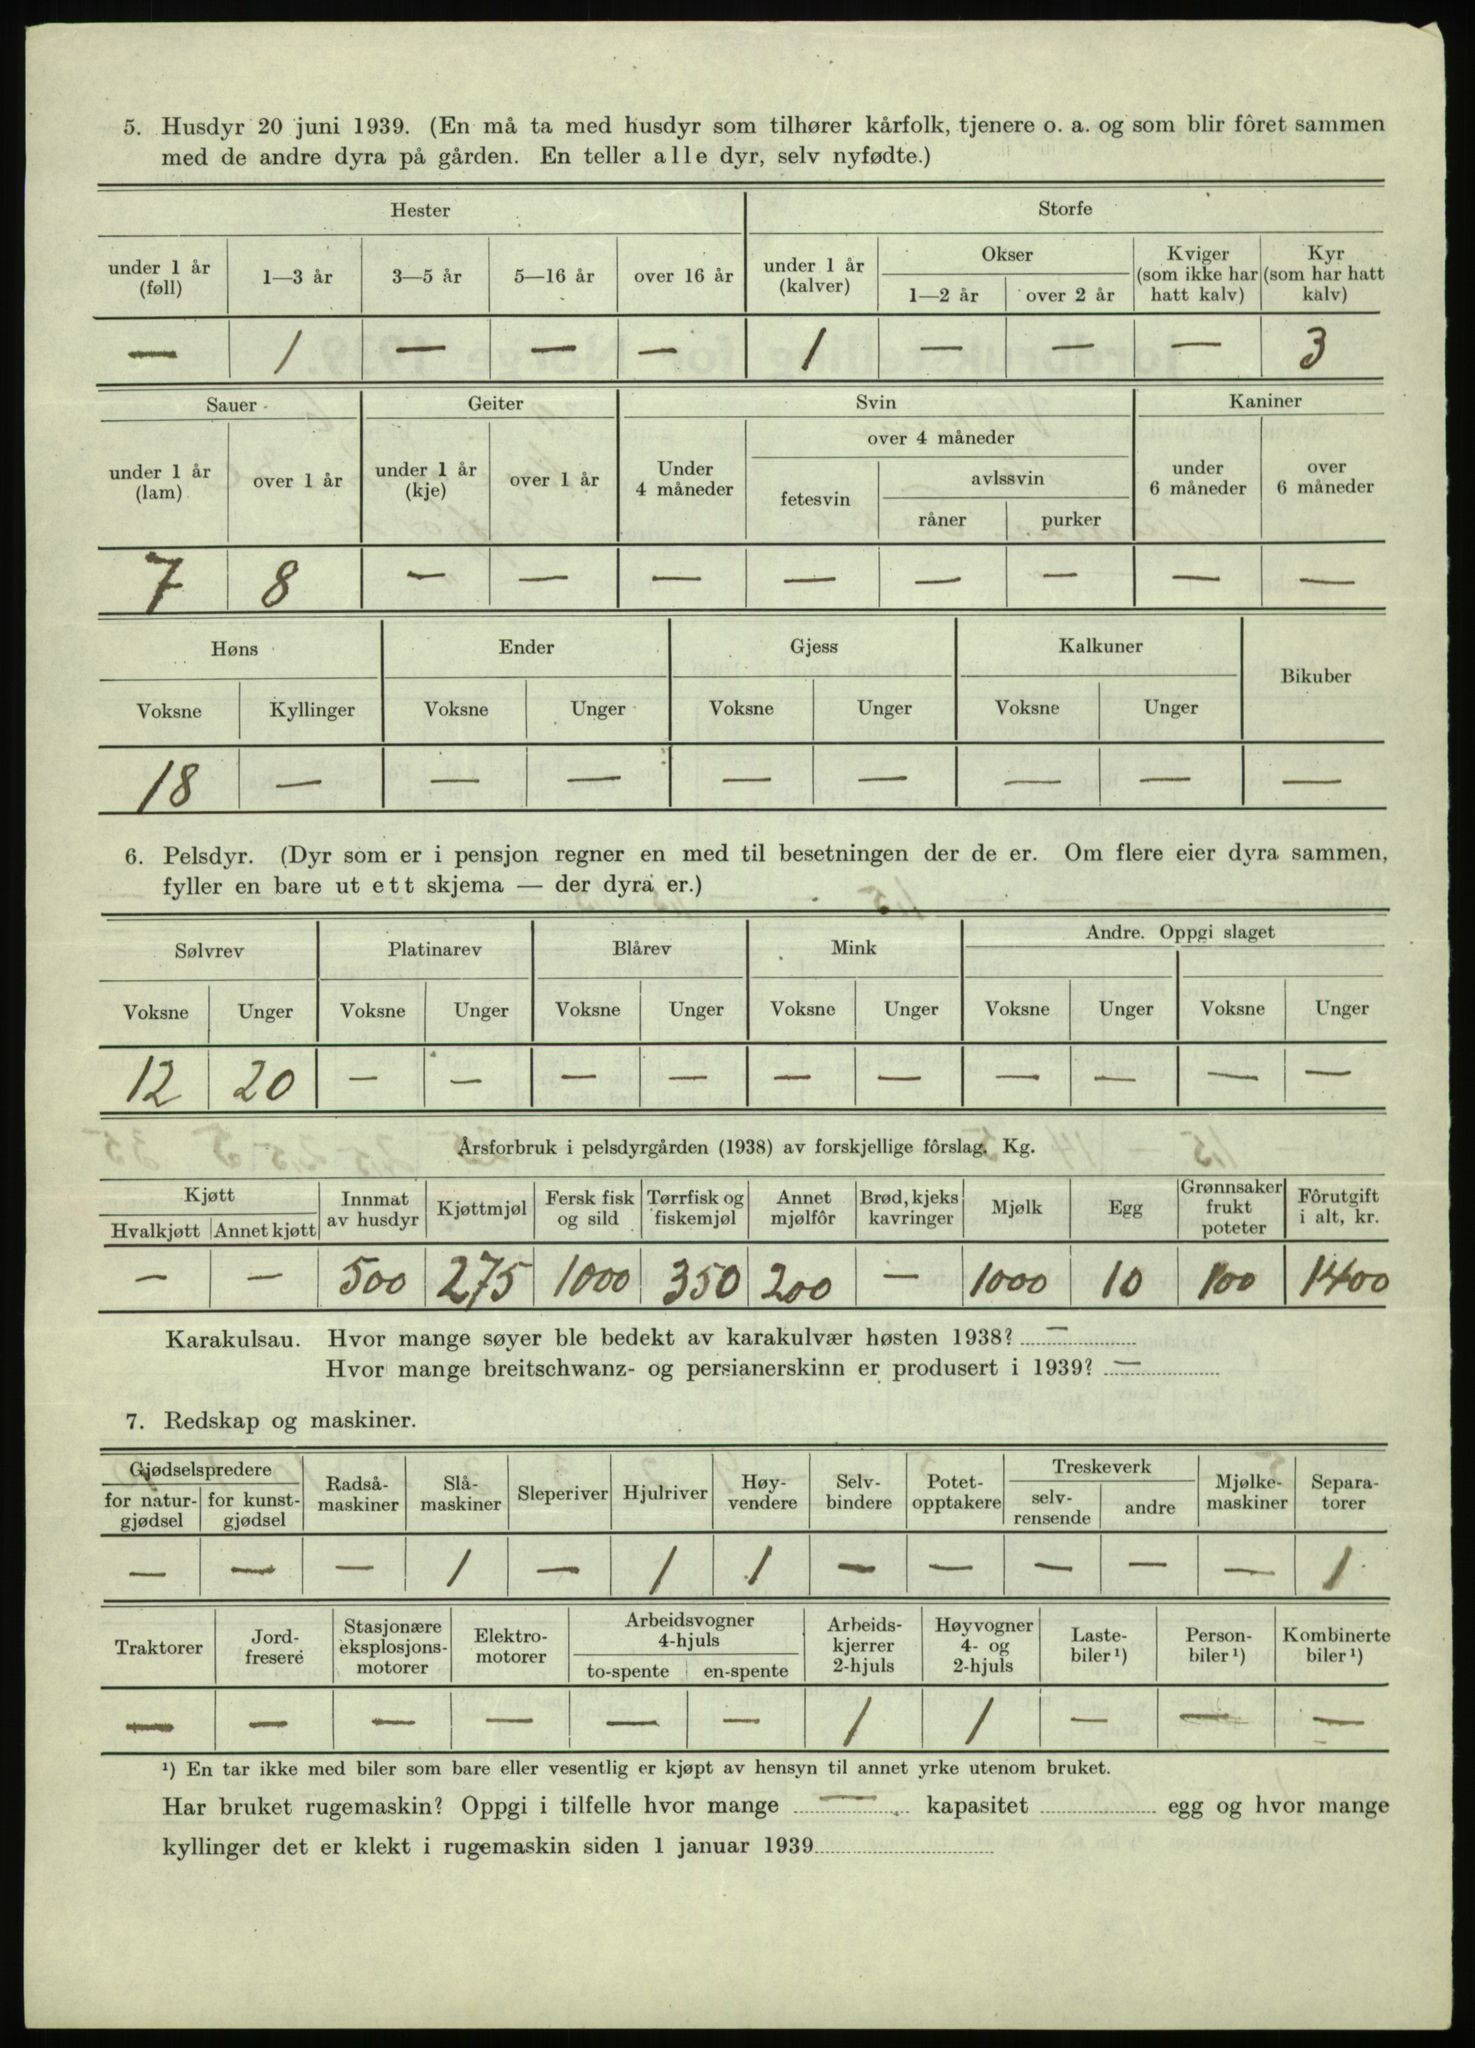 5. Husdyr 20 juni 1939. (En må ta med husdyr som tilhører kårfolk, tjenere o. a. og som blir fôret sammen
med de andre dyra på gården. En teller alle dyr, selv nyfødte.)
Hester Storfe
under 1 år (føll) 1—3 år 3—5 år 5—16 år over 16 år under 1 år (kalver) Okser 1—2 år over 2 år Kviger (som ikke har hatt kalv) Kyr (som har hatt kalv)
— 1 — — — 1 — — — 3
Sauer Geiter Svin Kaniner
under 1 år (lam) over 1 år under 1 år (kje) over 1 år Under 4 måneder over 4 måneder fetesvin avlssvin råner purker under 6 måneder over 6 måneder
7 8 — — — — — — — —
Høns Ender Gjess Kalkuner Bikuber
Voksne Kyllinger Voksne Unger Voksne Unger Voksne Unger
18 — — — — — — — —
6. Pelsdyr. (Dyr som er i pensjon regner en med til besetningen der de er. Om flere eier dyra sammen,
fyller en bare ut ett skjema — der dyra er.)
Sølvrev Platinarev Blårev Mink Andre. Oppgi slaget
Voksne Unger Voksne Unger Voksne Unger Voksne Unger Voksne Unger Voksne Unger
12 20 — — — — — — — — — —
Årsforbruk i pelsdyrgården (1938) av forskjellige fôrslag. Kg.
Kjøtt Hvalkjøtt Annet kjøtt Innmat av husdyr Kjøttmjøl Fersk fisk og sild Tørrfisk og fiskemjøl Annet mjølfôr Brød, kjeks kavringer Mjølk Egg Grønnsaker frukt poteter Fôrutgift i alt, kr.
— — 500 275 1000 350 200 — 1000 10 100 1400
Karakulsau. Hvor mange søyer ble bedekt av karakulvær høsten 1938? —
Hvor mange breitschwanz- og persianerskinn er produsert i 1939? —
7. Redskap og maskiner.
Gjødselspredere for naturgjødsel for kunstgjødsel Radsåmaskiner Slåmaskiner Sleperiver Hjulriver Høyvendere Selvbindere Potetopptakere Treskeverk selvrensende andre Mjølkemaskiner Separatorer
— — — 1 — 1 1 — — — — — 1
Traktorer Jordfresere Stasjonære eksplosjonsmotorer Elektromotorer Arbeidsvogner 4-hjuls to-spente en-spente Arbeidskjerrer 2-hjuls Høyvogner 4- og 2-hjuls Lastebiler ¹) Personbiler ¹) Kombinerte biler ¹)
— — — — — — 1 1 — — —
¹) En tar ikke med biler som bare eller vesentlig er kjøpt av hensyn til annet yrke utenom bruket.
Har bruket rugemaskin? Oppgi i tilfelle hvor mange — kapasitet egg og hvor mange
kyllinger det er klekt i rugemaskin siden 1 januar 1939